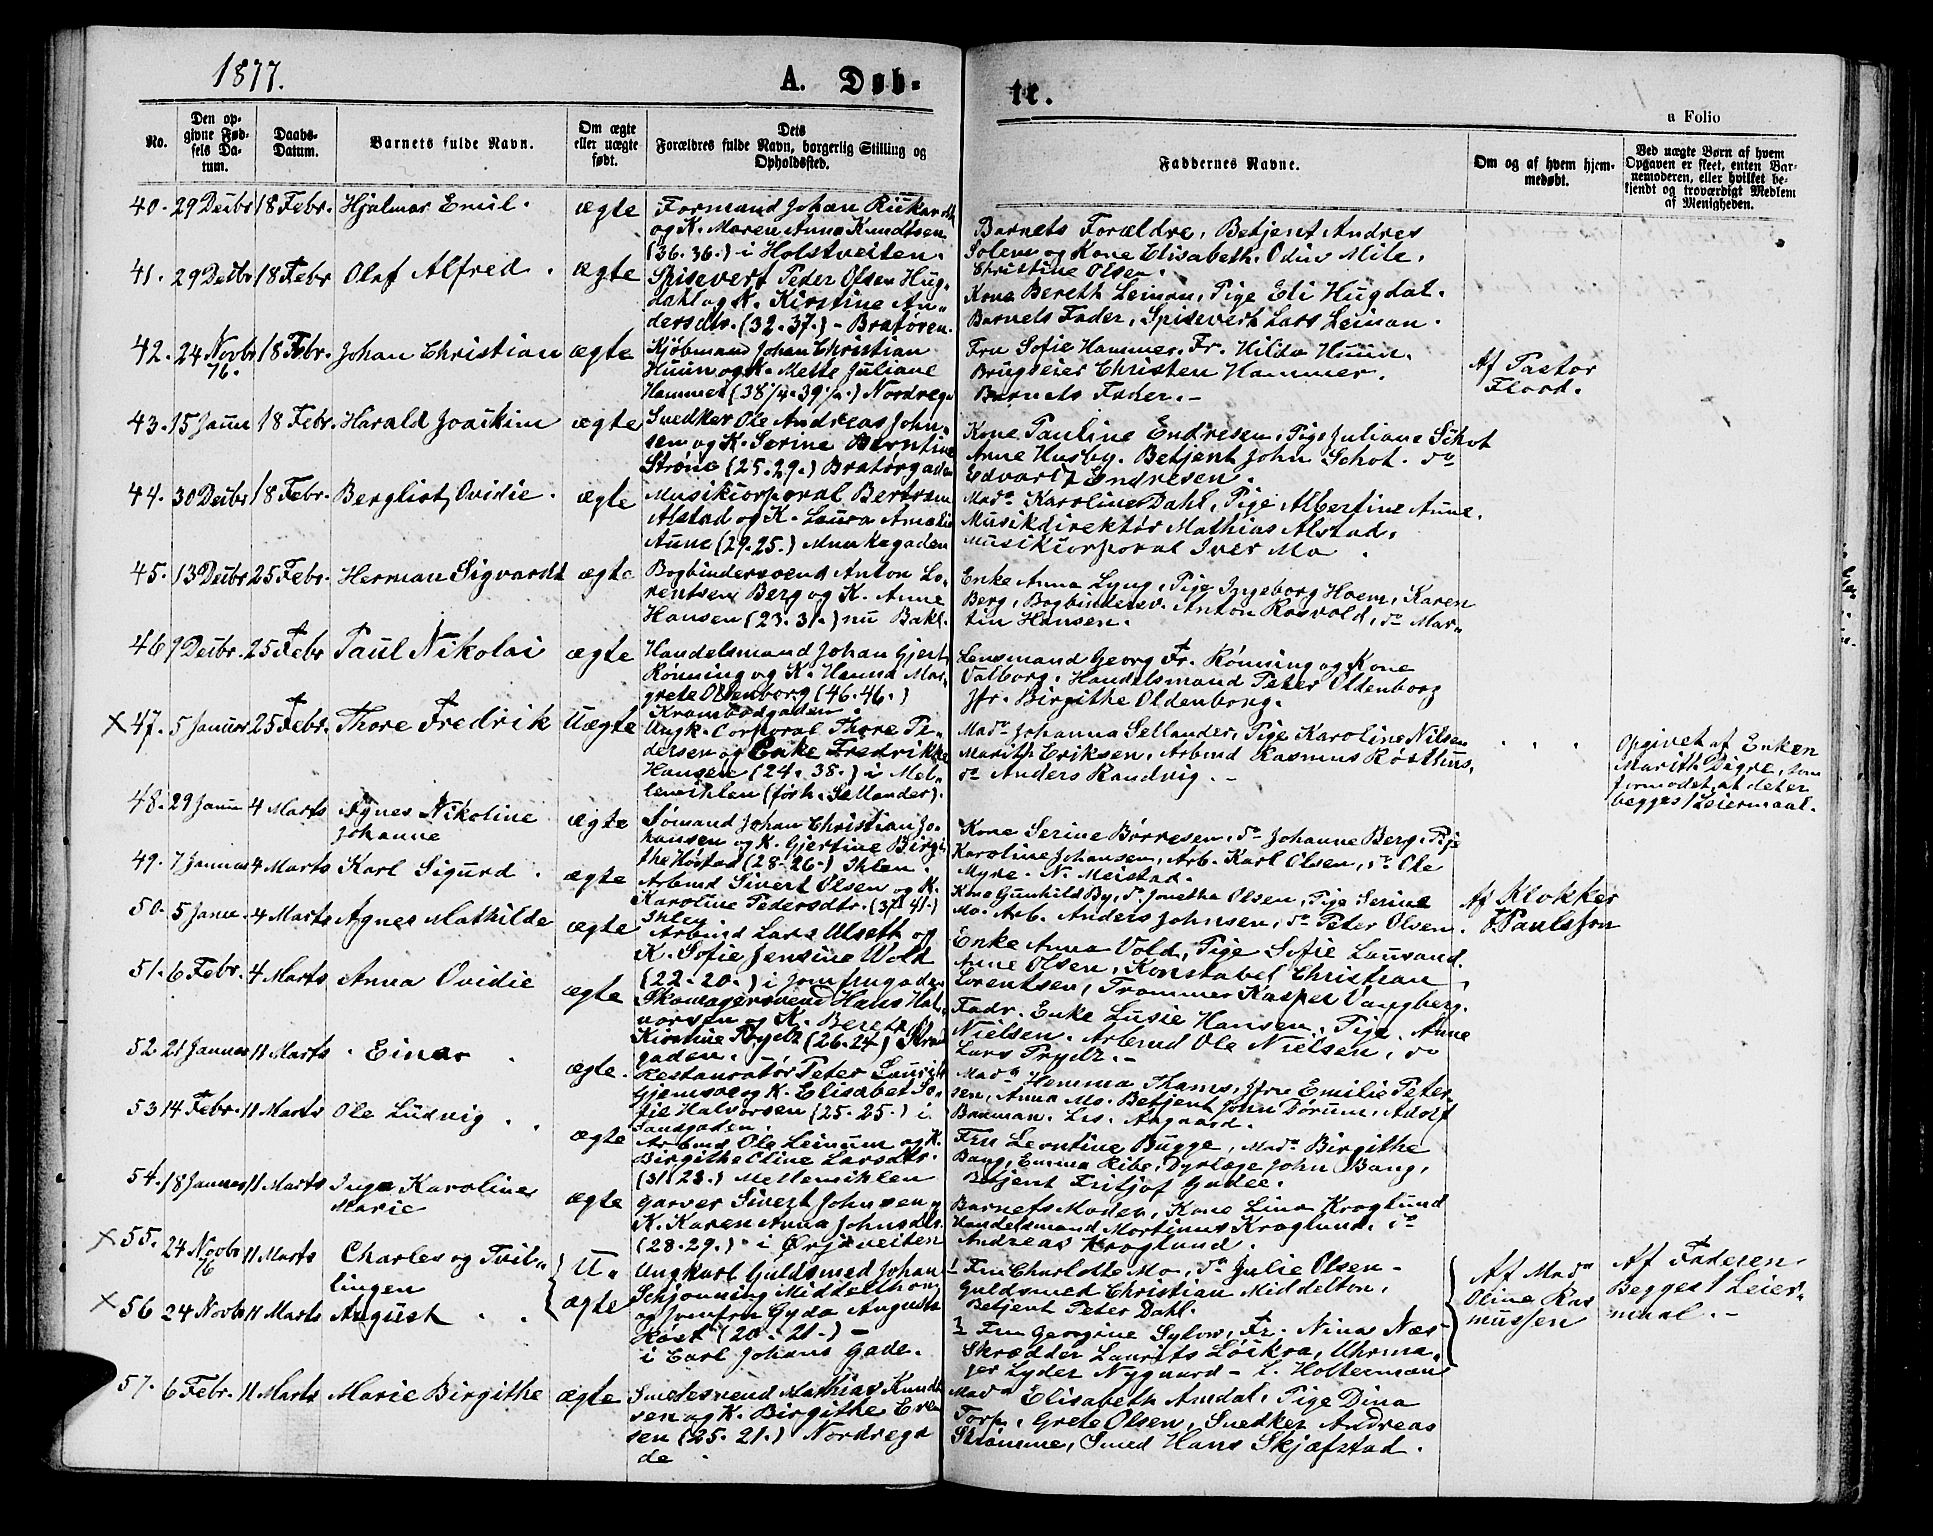 1877.
A. Døb-
te.
a Folio
No.
Den op-
givne Fød-
sels Da-
tum.
Daabs-
Datum.
Barnets fulde Navn.
Om ægte
eller uægte
født.
Dets
Forældres fulde Navn, borgerlig Stilling og
Opholdssted.
Faddernes Navne.
Om og af hvem hjem-
medøbt.
Ved uægte Børn af hvem
Opgaven er skeet, enten Bar-
nemoderen, eller hvilket be-
kjendt og troværdigt Medlem
af Menigheden.
40. 29 Decbr 18 Febr. Hjalmar Emil. ægte
Formand Johan Rickardt
og K. Maren Anna Knudtsen
(36. 36.) i Holstveiten.
Barnets Forældre, Betjent Andres
Solem og Kone Elisabeth. Odin Mile.
Christine Olsen.
41. 29 Decbr 18 Febr Olaf Alfred. ægte
Spisevert Peder Olsen Hug-
dahl og K. Kirstine An-
dersdtr. (32. 37.) - Bratøren.
Kone Bereth Leinan, Pige Eli Hugdal.
Barnets Fader, Spisevert Lars Leinan.
42. 24 Novbr 76. 18 Febr. Johan Christian ægte
Kjøbmand Johan Christian
Huun og K. Mette Juliane
Hammer (38 1/4. 39 1/2.) Nordregd
Fru Sofie Hammer. Fr. Hilda Huun.
Brugseier Christen Hammer.
Barnets Fader. -
Af Pastor
Flood.
43. 15 Januar 18 Febr. Harald Joakim ægte
Snedker Ole Andreas John-
sen og K. Serine Berntine
Strøm (25. 29.) Bratørgaden
Kone Pauline Endresen, Pige Juliane Schot
Anne Husby. Betjent John Schot. do
Edvard Endresen.
44. 30 Decbr 18 Febr. Bergliot Ovidie. ægte
Musikcorporal Bertram
Alstad og K. Laura Amalie
Aune (29. 25.) Munkegaden
Mada Karoline Dahl, Pige Albertine Aune.
Musikdirektør Mathias Alstad.
Musikcorporal Iver Mo.
45. 13 Decbr 25 Febr. Herman Sigvardt ægte
Bogbindersvend Anton Lo-
rentsen Berg og K. Anne
Hansen (23. 31.) nu Bakl.
Enke Anna Lyng, Pige Ingeborg Hoem, Karen
Berg, Bogbindersv. Anton Rosvold, do Mar-
tin Hansen.
46 9 Decbr. 25 Febr Paul Nikolai ægte
Handelsmand Johan Gjert
Rønning og K. Hanna Mar-
grete Oldenborg (46. 46.)
Krambodgaden.
Lensmand Georg Fr. Rønning og Kone
Valborg. Handelsmand Peter Oldenborg
Jfr. Birgithe Oldenborg.
x 47. 5 Januar 25 Febr. Thore Fredrik Uægte
Ungk. Corporal Thore Pe-
dersen og Enke Fredrikke
Hansen (24. 38.) i Mel-
lemihlen (forh. Sellander).
Mada Johanna Sellander, Pige Karoline Nilsen
Marith Eriksen, Arbmd Rasmus Røsthus,
do Anders Randvig. -
Opgivet af Enken
Marith Digre, som
formodet, at det er
begges 1 Leiermaal.
48. 29 Janu 4 Marts Agnes Nikoline
Johanne ægte
Sømand Johan Christian Jo-
hansen og K. Gjertine Birgi-
the Høstad (28-26.) Ihlen.
Kone Serine Børresen, do Johanne Berg, Pige
Karoline Johansen, Arb. Karl Olsen, do Ole
Myre. N. Meistad.
49. 7 Januar 4 Marts Karl Sigurd. ægte
Arbmd Sivert Olsen og K.
Karoline Pedersdtr. (37. 41.)
Ihlen
Kone Gunhild By, do Jonetha Olsen, Pige Serine
Mo. Arb. Anders Johnsen, do Peter Olsen.
50. 5 Janu. 4 Marts Agnes Mathilde ægte
Arbmd Lars Ulseth og
K. Sofie Jensine Wold
(22-20.) i Jomfrugaden
Enke Anna Vold, Pige Sofie Lausand.
Anne Olsen, Konstabel Christian
Lorentsen, Trommer Kasper Vangberg.
Af Klokker
F. Paulsson
51. 6 Febr. 4 Marts Anna Ovidie ægte
Skomagersvend Hans Hal-
vorsen og K. Bereth
Kirstine Prydz (26.24) Stran
gaden.
Fadr. Enke Lusie Hansen. Pige Anne
Nielsen. Arbmd Ole Nielsen, do
Lars Prydz. -
52. 21 Januar 11 Marts. Einar. ægte.
Restauratør Peter Lauritz
Gjemsøe og K. Elisabet So-
fie Halvorsen (25. 25.) i
Sandgaden.
Mada Hemma Thams, Jfru Emilie Peter
sen, Anna Mo. Betjent John Tørum, Adolf
Bauman. Lrs. Aagaard.
53 14 Febr. 11 Marts. Ole Ludvig.. ægte
Arbmd Ole Leinum og K.
Birgithe Oline Larsdtr.
(31. 23.) Mellemihlen
Fru Leontine Bugge, Mada Birgithe
Bang, Emma Ribe, Dyrlæge John Bang,
Betjent Fritjof Gadee.
54. 18 Januar 11 Marts Inga Karoline
Marie ægte
Garver Sivert Johnsen og
K. Karen Anna Johnsdtr.
(28-29.) i Ørjaveiten
Barnets Moder, Kone Lina Kroglund
Handelsmand Mortinus Kroglund, do
Andreas Kroglund.
x 55. 24 Novbr 76 11 Marts Charles og Tvil-
lingen
x 56 24 Novbr 11 Marts August.. U-
ægte
Ungkarl Guldsmed Johan
Schjønning Middelthon
og Jomfru Gyda Augusta
Høst (20. 21.) -
i Carl Johans Gade.
1 Fru Charlotte Mo-, do Julie Olsen-
Guldsmed Christian Middelton,
Betjent Peter Dahl.
2 Fru Georgine Sylow, Fr. Nina Næs
Skrædder Laurits Løikra, Uhrma-
ger Lyder Nygaard - L. Holtermann
Af Mada
Oline Ras
mussen
Af Faderen
Begges 1 Leier-
maal. -
57. 6 Febr. 11 Marts Marie Birgithe ægte
Smedesvend Mathias Knudt
sen og K. Birgithe Even
sen (25. 21.) Nordrega
de.
Mada Elisabeth Amdal, Pige Dina
Torp, Grete Olsen, Snedker Andreas
Strømme, Smed Hans Skjæfstad.